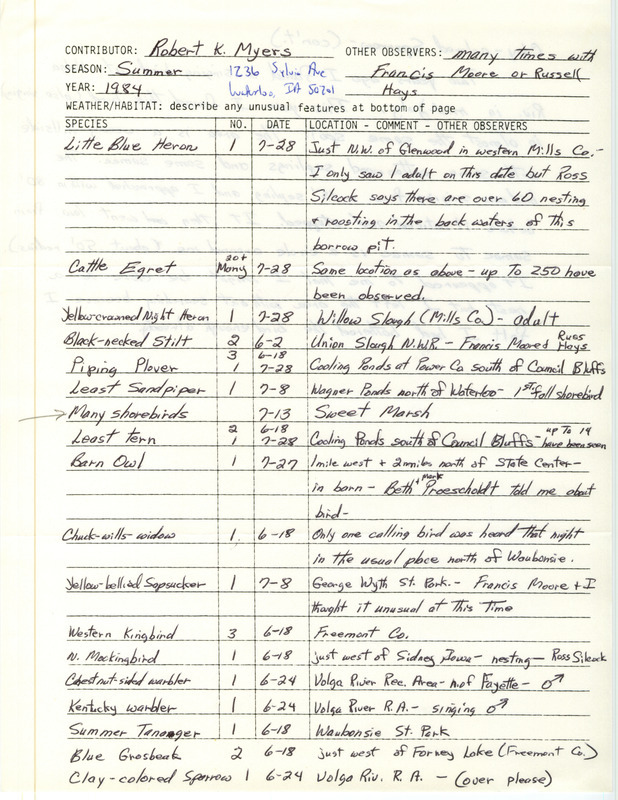 CONTRIBUTOR: Robert K. Myers OTHER OBSERVERS: many times with
SEASON: Summer 1236 Sylvia Ave Francis Moore or Russell
YEAR: 1984 Waterloo, IA 50701 Hays
WEATHER/HABITAT: describe any unusual features at bottom of page
SPECIES NO. DATE LOCATION - COMMENT - OTHER OBSERVERS
Little Blue Heron 1 7-28 Just N.W. of Glenwood in western Mills Co.-
I only saw 1 adult on this date but Ross
Silcock says there are over 60 nesting
+ roosting in the back waters of this
borrow pit.
Cattle Egret 20+ Many 7-28 Same location as above - up To 250 have
been observed.
Yellow-crowned Night Heron 1 7-28 Willow Slough (Mills Co) - adult
Black-necked Stilt 2 6-2 Union Slough N.W.R. - Francis Moore & Russ Hays
Piping Plover 3 6-18
1 7-28 Cooling Ponds at Power Co south of Council Bluffs
Least Sandpiper 1 7-8 Wagner Ponds north of Waterloo - 1st fall shorebird
→ Many shorebirds 7-13 Sweet Marsh
Least Tern 2 6-18
1 7-28 Cooling Ponds south of Council Bluffs - up To 14 have been seen
Barn Owl 1 7-27 1 mile west + 2 miles north of State Center -
in barn - Beth + Mark Proescholdt told me about
bird -
Chuck-wills-widow 1 6-18 Only one calling bird was heard that night
in the usual place north of Waubonsie.
Yellow-bellied Sapsucker 1 7-8 George Wyth St. Park. - Francis Moore + I
thought it unusual at This Time
Western Kingbird 3 6-18 Freemont Co.
N. Mockingbird 1 6-18 just west of Sidney Iowa - nesting - Ross Silcock
Chestnut-sided warbler 1 6-24 Volga River Rec. Area - n. of Fayette - ♂
Kentucky warbler 1 6-24 Volga River R.A. - singing ♂
Summer Tanager 1 6-18 Waubonsie St. Park
Blue Grosbeak 2 6-18 just west of Forney Lake (Freemont Co.)
Clay-colored Sparrow 1 6-24 Volga Riv. R. A. - (over please)